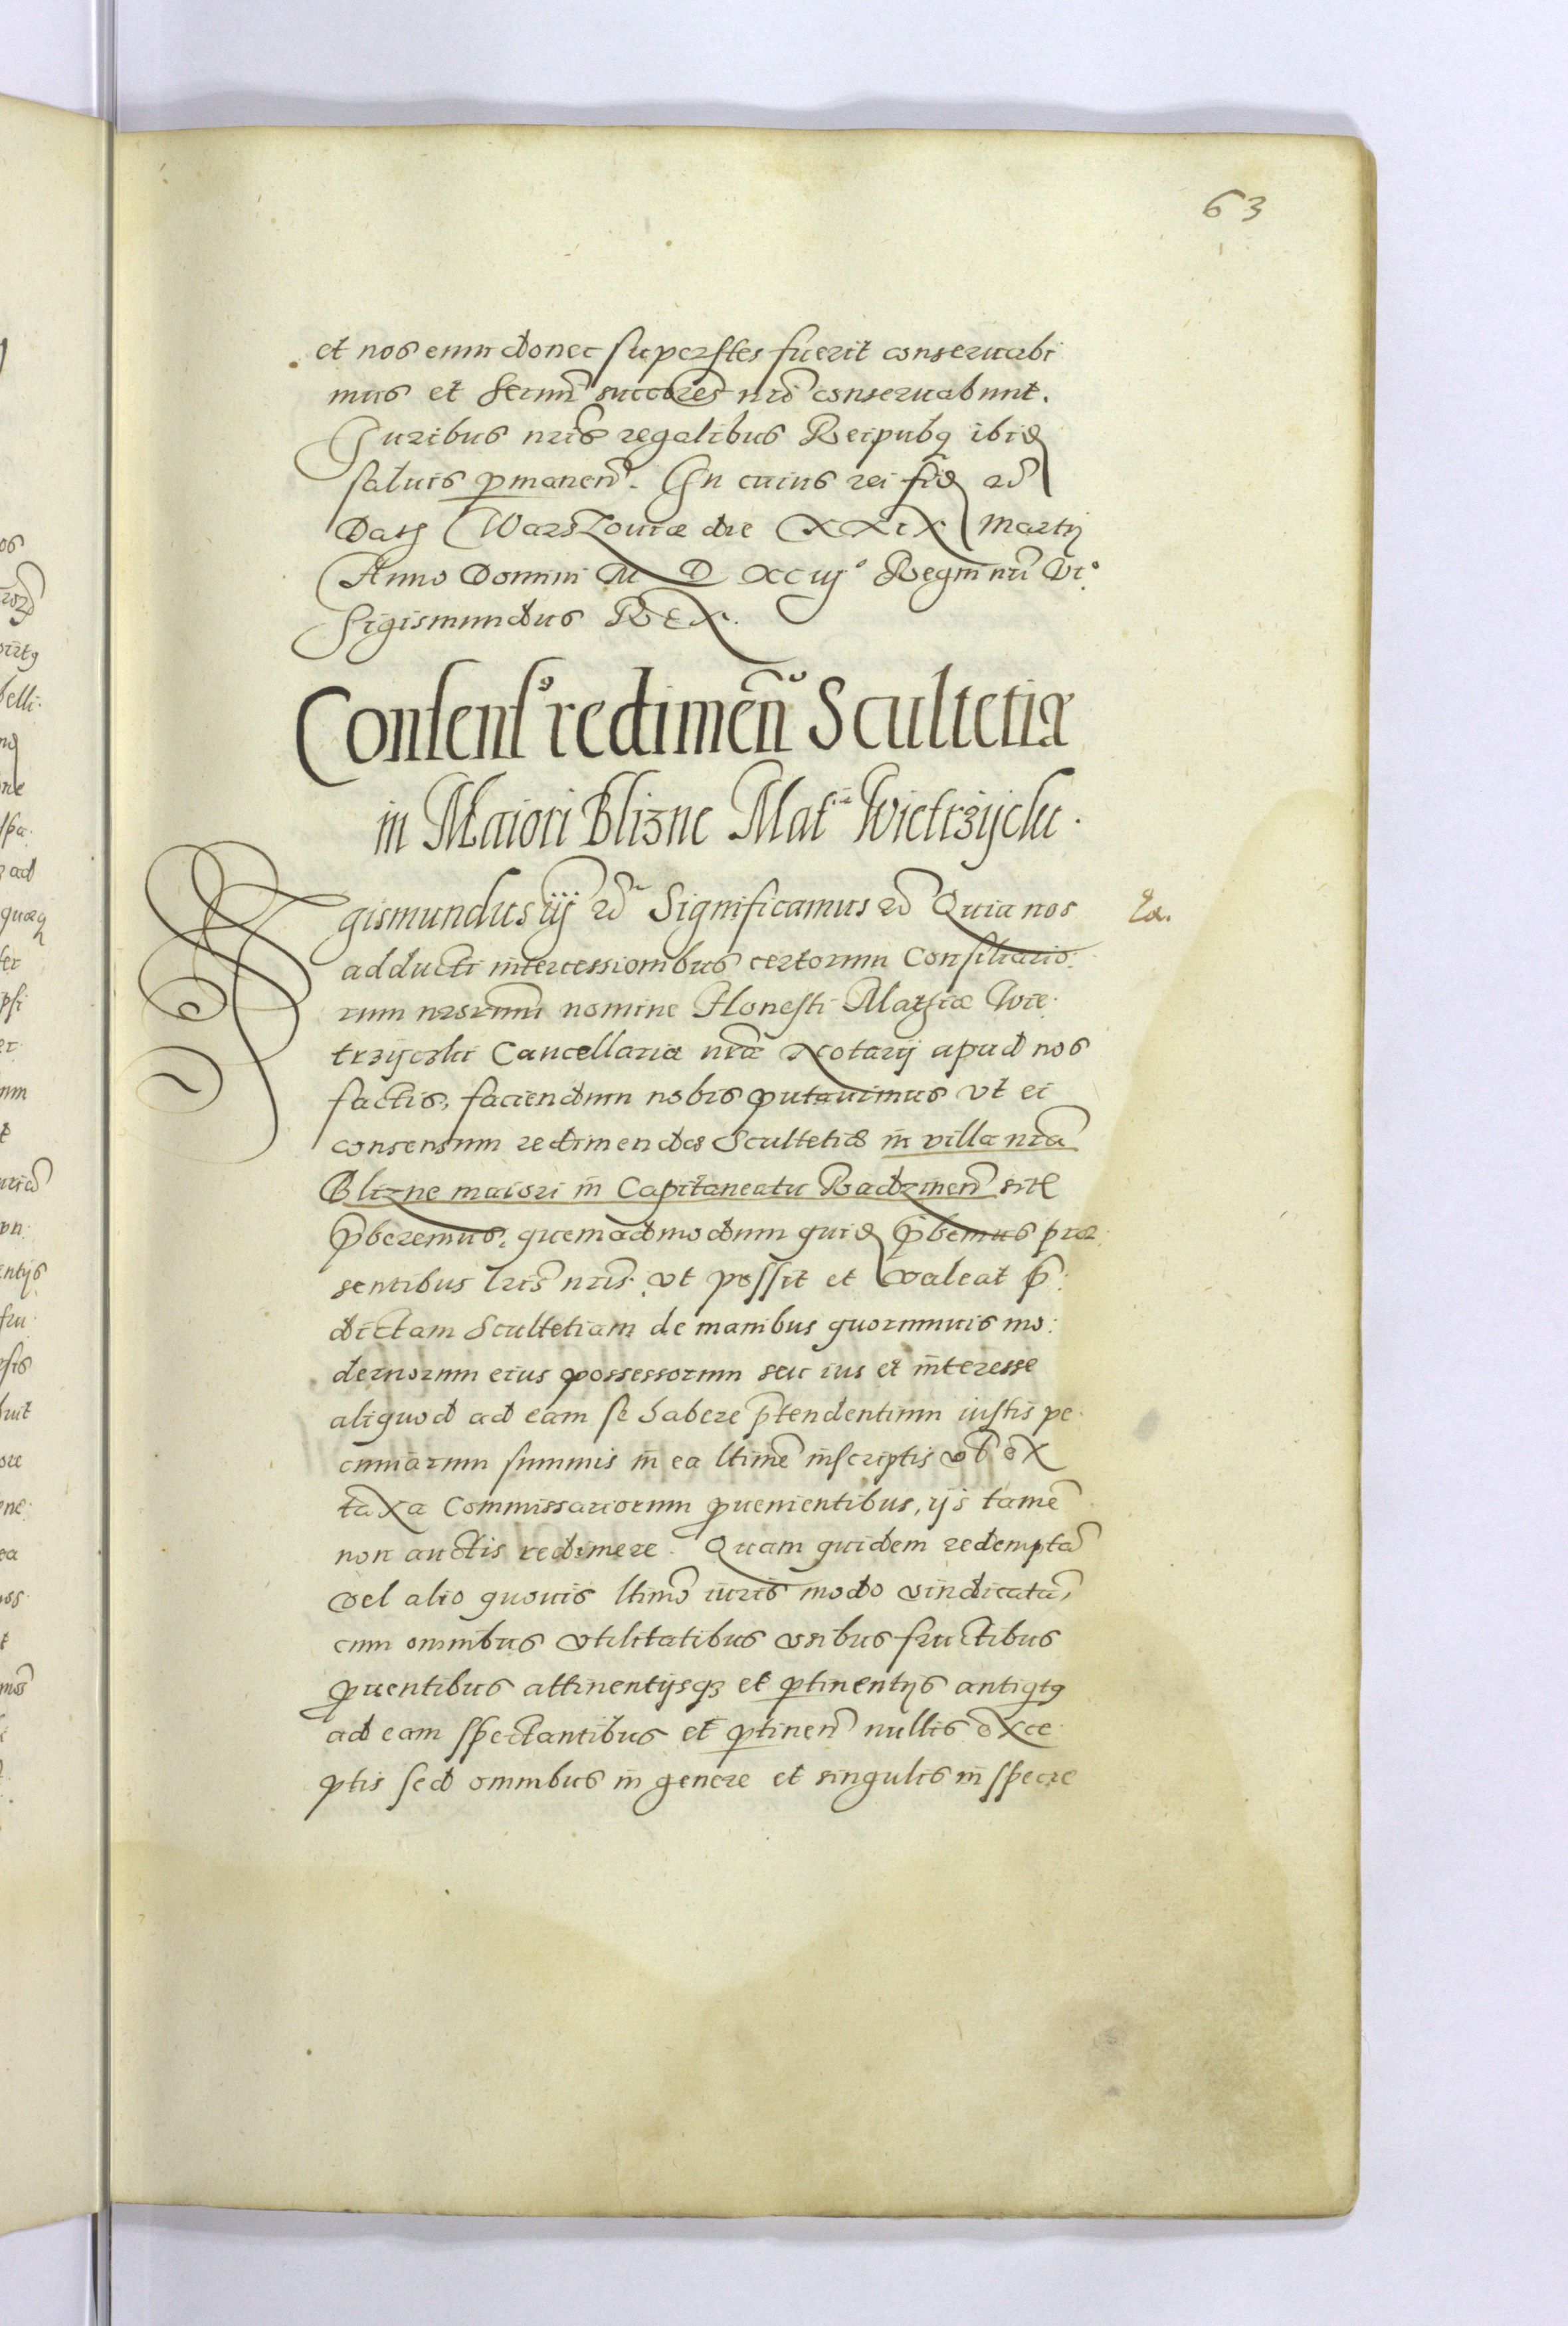 63
et nos eum donec superstes fuerit conseruabi
mus et Sermi succōres nrī conseruabunt.
Iuribus nrīs regalibus Reipubq ibid
saluis pmanen. In cuius rei fid
Datq Warszouiæ die XXIX Martij
Anno Domini M D XCiij° Regni nrī Vi°
Sigismundus REX.
Consens9 redimēn Scultetiæ
in Maiori Blizne Mat Wietrzijcki.
Sigismundus iij Significamus Quia nos
adducti intercessionibus certorum Consiliario:
rum nrorum nomine Honesti Mathiæ Wie:
trzijczki Cancellariæ nræ Notarij apud nos
factis, faciendum nobis putauimus vt ei
consensum redimendæ Scultetiæ in villa nrā
Blizne maiori in Capitaneatu Radzinen sitæ
pberemus, quemadmodum quid pbemus præ:
sentibus lris nris. vt possit et valeat p:
dictam Scultetiam de manibus quorumuis mo:
dernorum eius possessorum seu ius et interesse
aliquod ad eam se habere ptendentium iustis pe:
cuniarum summis in ea ltime inscriptis vl ex
taxa Commissariorum puenientibus, ijs tamē
non auctis redimere. Quam quidem redemptā
vel alio quouis ltimo iuris modo vindicatā,
cum omnibus vtilitatibus vsibus fructibus
puentibus attinentijsq3 et ptinentijs antiqtq
ad eam spectantibus et ptinen nullis exce
ptis sed omnibus in genere et singulis in specie